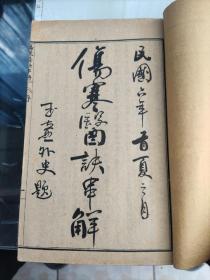 民國六年首夏之月
傷寒醫訣串解
玉壺外史題